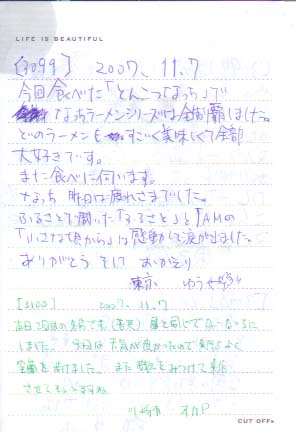 LIFE IS BEAUTIFUL
[3099] 2007、11.7
今回食べた「とんこつなっち」で
なっちラーメンシリーズは全制覇しました。
どのラーメンも すごく美味しくて全部
大好きです。
また食べに伺います。
なっち 昨日は疲れさまでした。
ふるさとで聞いた「ふるさと」と「AMの
「小さな頃から」は感動して涙が出ました。
ありがとう そして おかえり
東京 ゆうせい
[3100] 2007、11.7
本日2回目の来店です。
しました。今日は天気が良かったので
させてもらいますね
川崎市
CUT OFF▸